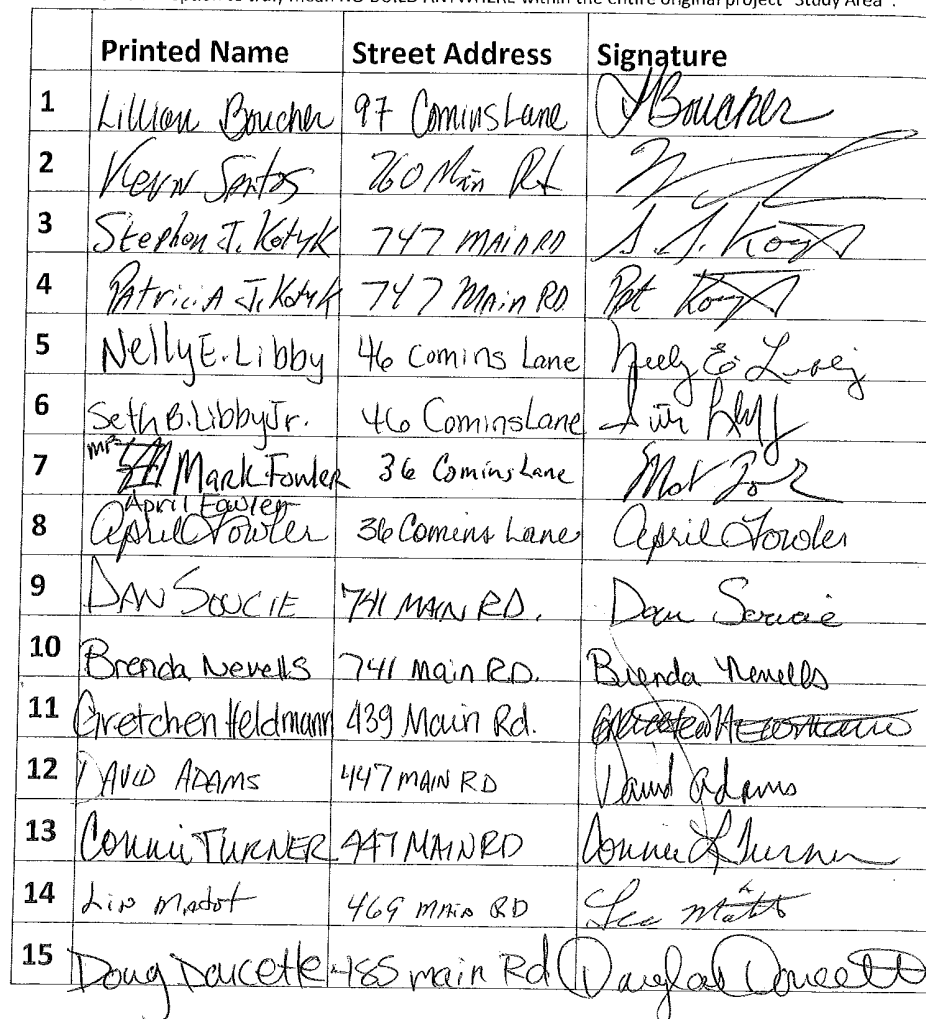 option to truly mean NO BUILD ANYWHERE within the entire original project "Study Area".
Printed Name Street Address Signature
1 Lillian Boucher 97 Comins Lane Boucher
2 Kevin Santos 760 Main Rd
3 Stephen J. Kotyk 747 MAIN RD S. J.
4 PAtriciA J. Kotyk 747 Main RD. Pat
5 Nelly E. Libby 46 Comins Lane Nelly E. Libby
6 Seth B. Libby Jr. 46 Comins Lane
7 Mark Fowler 36 Comins Lane
April Fowler
8 April Fowler 36 Comins Lane April Fowler
9 DAN SOUCIE 741 MAIN RD. Dan Soucie
10 Brenda Nevells 741 Main RD. Brenda Nevells
11 Gretchen Heldmann 439 Main Rd.
12 DAVID ADAMS 447 MAIN RD David Adams
13 Connie TURNER 447 MAIN RD Connie L Turner
14 469 MAIN RD
15 Doug Doucette 485 main Rd Douglas Doucette